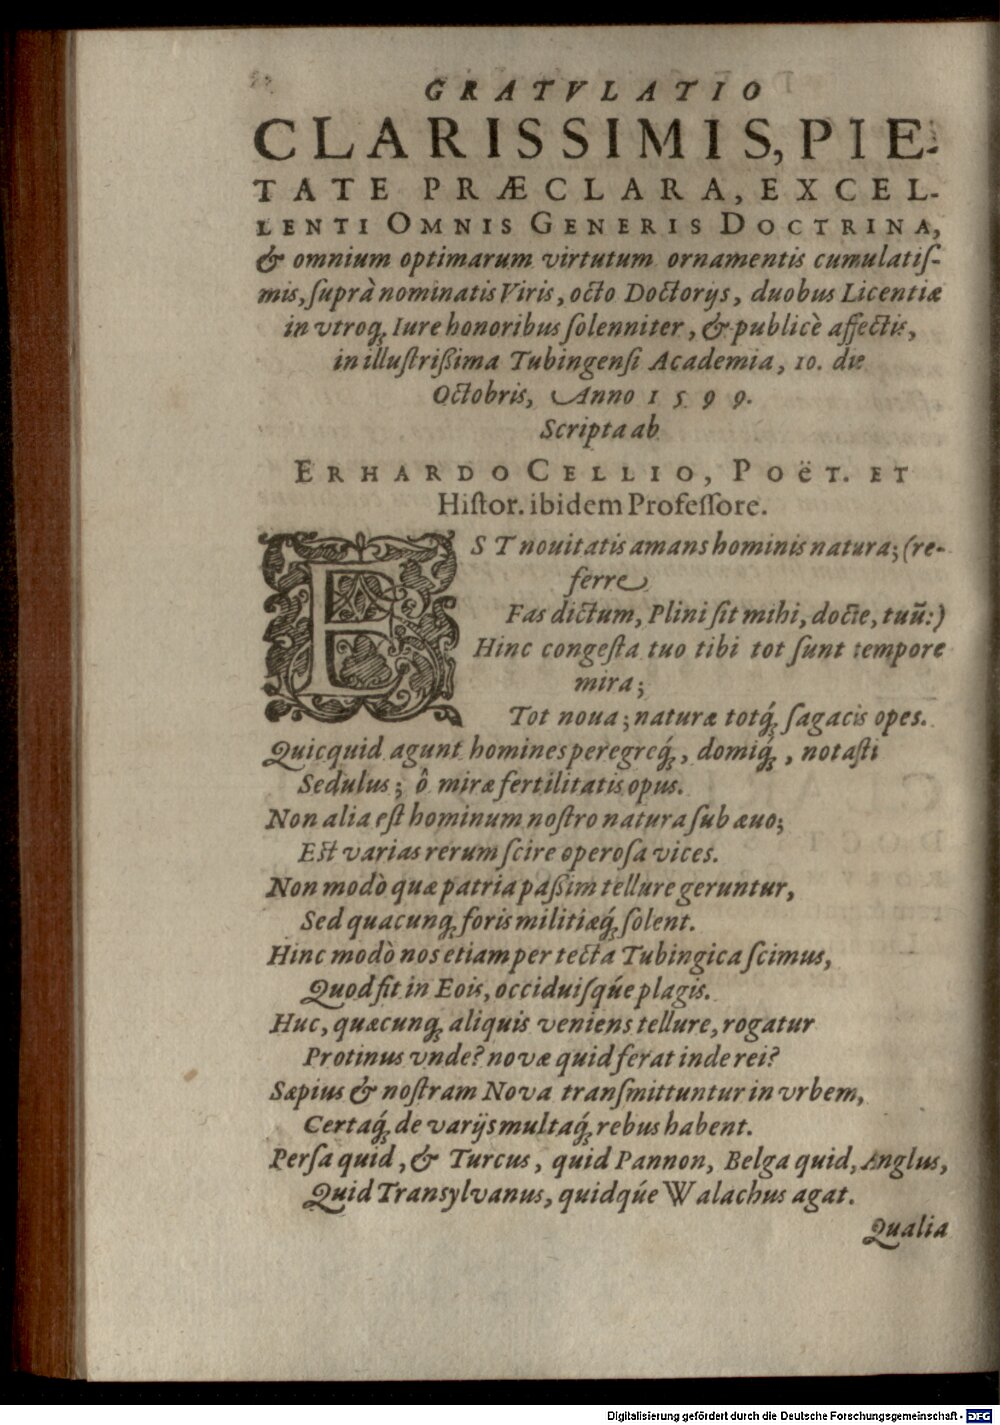 GRATVLATIO
CLARISSIMIS, PIE-
TATE PRÆCLARA, EXCEL-
LENTI OMNIS GENERIS DOCTRINA,
& omnium optimarum virtutum ornamentis cumulatiſ-
mis, ſuprà nominatis Viris, octo Doctorijs, duobus Licentiæ
in vtroq́; Iure honoribus ſolenniter, & publicè affectis,
in illuſtriſsima Tubingenſi Academia, 10. die
Octobris, Anno 1599.
Scripta ab
ERHARDO CELLIO, POËT. ET
Hiſtor. ibidem Profeſſore.
EST nouitatis amans hominis natura; (re-
ferre
Fas dictum, Plini ſit mihi, docte, tuũ:)
Hinc congeſta tuo tibi tot ſunt tempore
mira;
Tot noua; naturæ totq́; ſagacis opes.
Quicquid agunt homines peregreq́;, domiq́;, notaſti
Sedulus; ô miræ fertilitatis opus.
Non alia eſt hominum noſtro natura ſub æuo;
Eſt varias rerum ſcire operoſa vices.
Non modò quæ patria paſsim tellure geruntur,
Sed quacunq; foris militiæq́; ſolent.
Hinc modò nos etiam per tecta Tubingica ſcimus,
Quod fit in Eois, occiduiſqúe plagis.
Huc, quæcunq; aliquis veniens tellure, rogatur
Protinus vnde? novæ quid ferat inde rei?
Sæpius & noſtram Nova tranſmittuntur in vrbem,
Certaq́; de varijs multaq́; rebus habent.
Perſa quid, & Turcus, quid Pannon, Belga quid, Anglus,
Quid Tranſylvanus, quidqúe Walachus agat.
Qualia
Digitalisierung gefördert durch die Deutsche Forschungsgemeinschaft - DFG